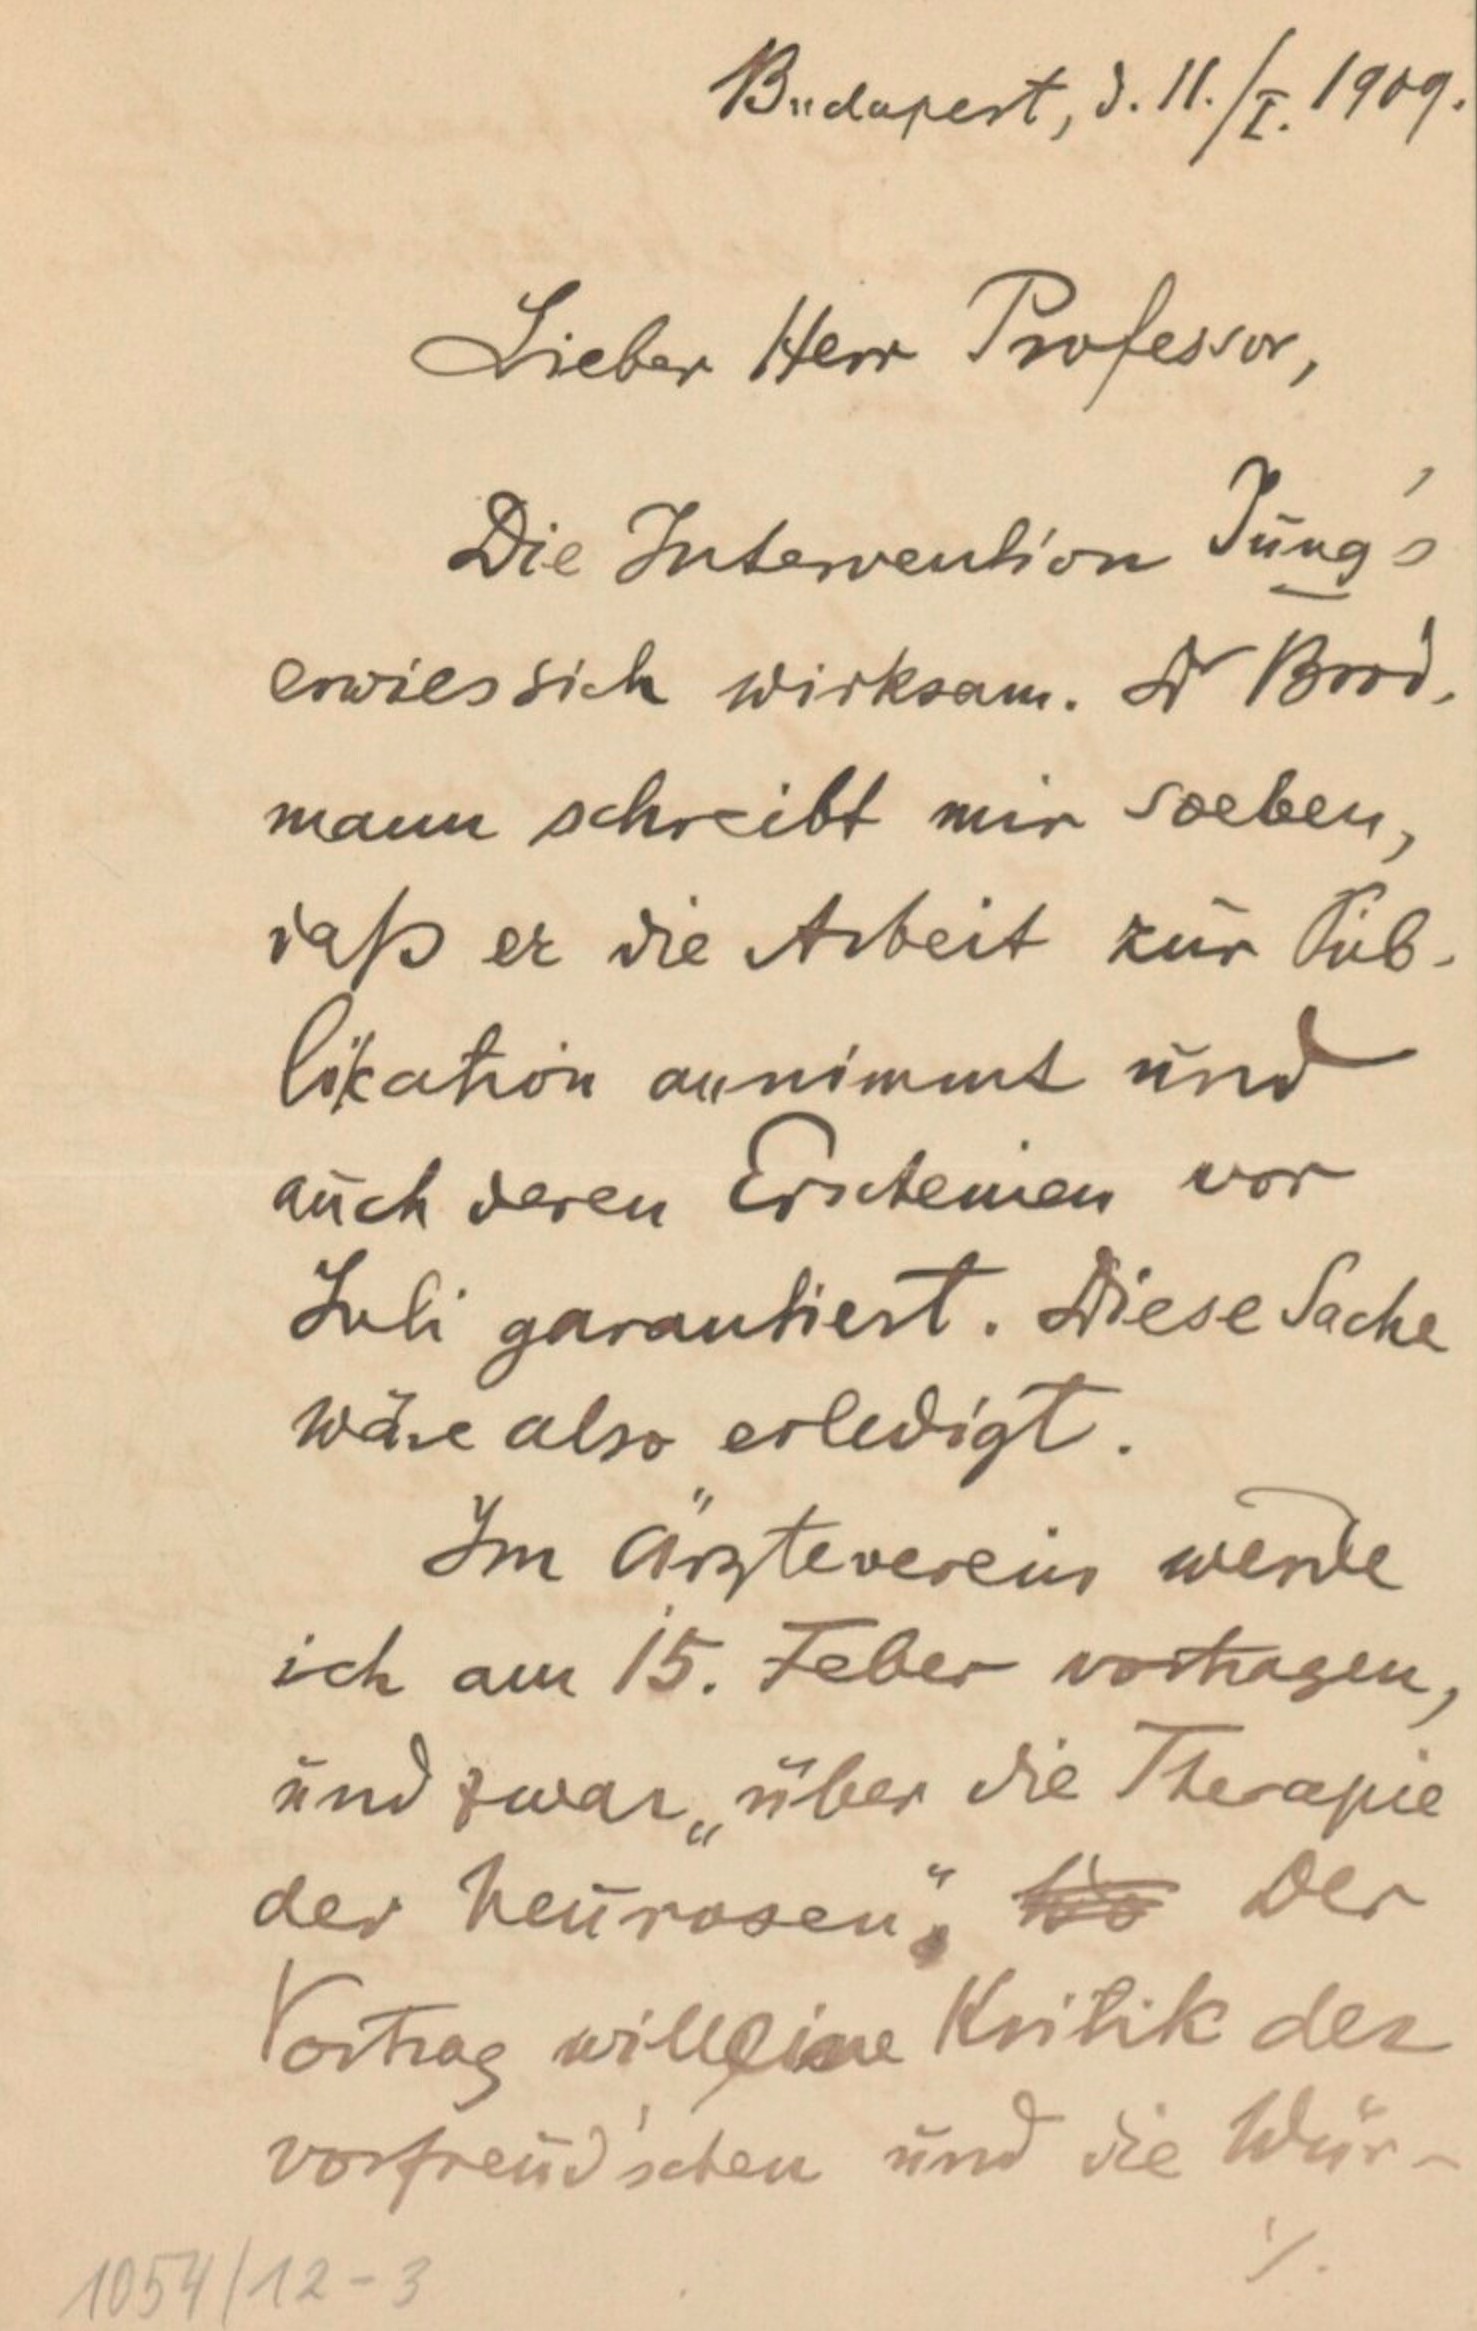 Budapest, d. 11./I. 1909.
Lieber Herr Professor,
Die Intervention Jung's
erwies sich wirksam. Dr Brod-
mann schreibt mir soeben,
daß er die Arbeit zur Pub-
likation annimmt und
auch deren Erscheinen vor
Juli garantiert. Diese Sache
wäre also erledigt.
Im Ärzteverein werde
ich am 15. Feber vortragen,
und zwar „über die Therapie
der Neurosen“. Der
Vortrag will eine Kritik der
vorfreud'schen und die Wür-
./.
1054/12-3